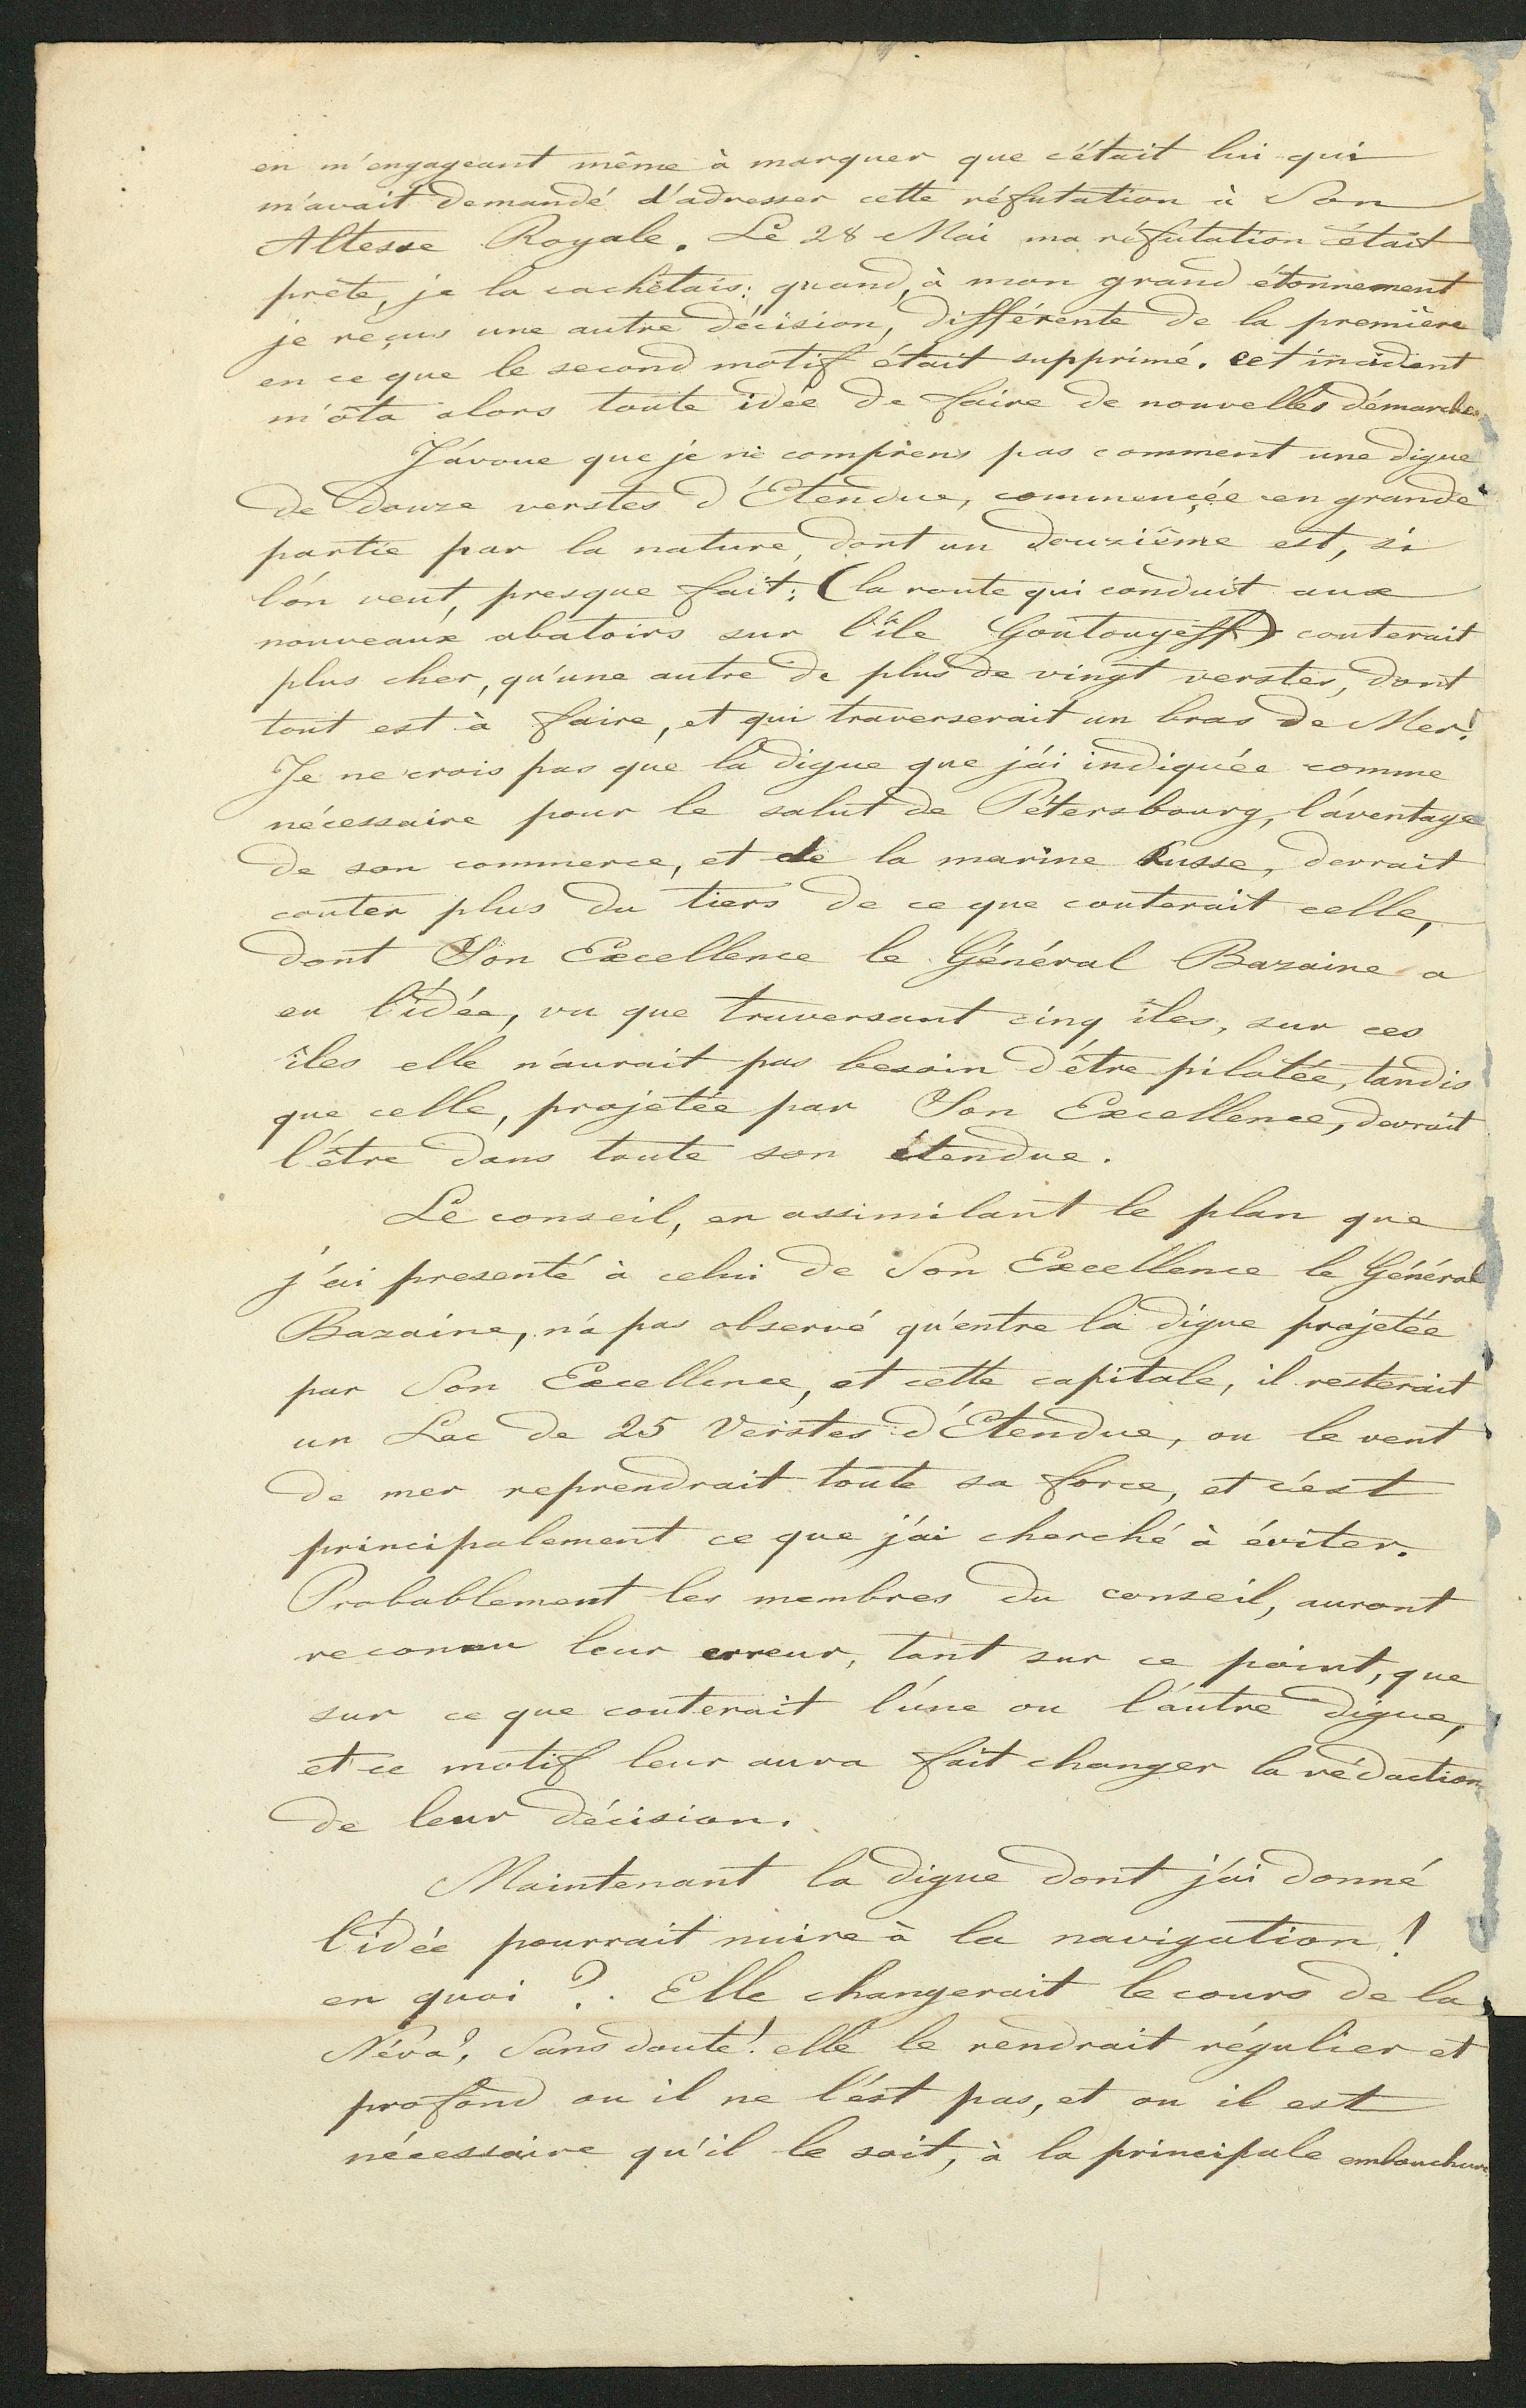 en m'engageant même à marquer que c'était lui qui
m'avait demandé d'adresser cette réfutation à Son
Altesse Royale. Le 28 Mai ma réfutation était
prête, je la cachêtais: quand, à mon grand étonnement
je reçus une autre décision, différente de la première
en ce que le second motif était supprimé. cet incident
m'ôta alors toute idée de faire de nouvelles démarches.
J'avoue que je ne comprens pas comment une digue
de douze verstes d'Etendue, commençée en grande
partie par la nature, dont un douzième est, si
l'on veut, presque fait: (la route qui conduit aux
nouveaux abatoirs sur l'île Goutouyeff) couterait
plus cher, qu'une autre de plus de vingt verstes, dont
tout est à faire, et qui traverserait un bras de Mer!
Je ne crois pas que la digue que j'ai indiquée comme
nécessaire pour le salut de Pétersbourg, l'aventage
de son commerce, et de la marine Russe, devrait
couter plus du tiers de ce que couterait celle,
dont Son Excellence le Général Bazaine a
eu l'idée, vu que traversant cinq îles, sur ces
îles elle n'aurait pas besoin d'être pilotée, tandis
que celle, projetée par Son Excellence, devrait
l'être dans toute son étendue.
Le conseil, en assimilant le plan que
j'ai presenté à celui de Son Excellence le Général
Bazaine, n'a pas observé qu'entre la digue projetée
par Son Excellence, et cette capitale, il resterait
un Lac de 25 Verstes d'Etendue, ou le vent
de mer reprendrait toute sa force, et c'est
principalement ce que j'ai cherché à éviter.
Probablement les membres du conseil, auront
reconnu leur erreur, tant sur ce point, que
sur ce que couterait l'une ou l'autre digue,
et ce motif leur aura fait changer la rédaction
de leur décision.
Maintenant la digue dont j'ai donné
l'idée pourrait nuire à la navigation!
en quoi?. Elle changerait le cours de la
Néva?, Sans doute! elle le rendrait régulier et
profond ou il ne l'est pas, et ou il est
nécessaire qu'il le soit, à la principale embouchure